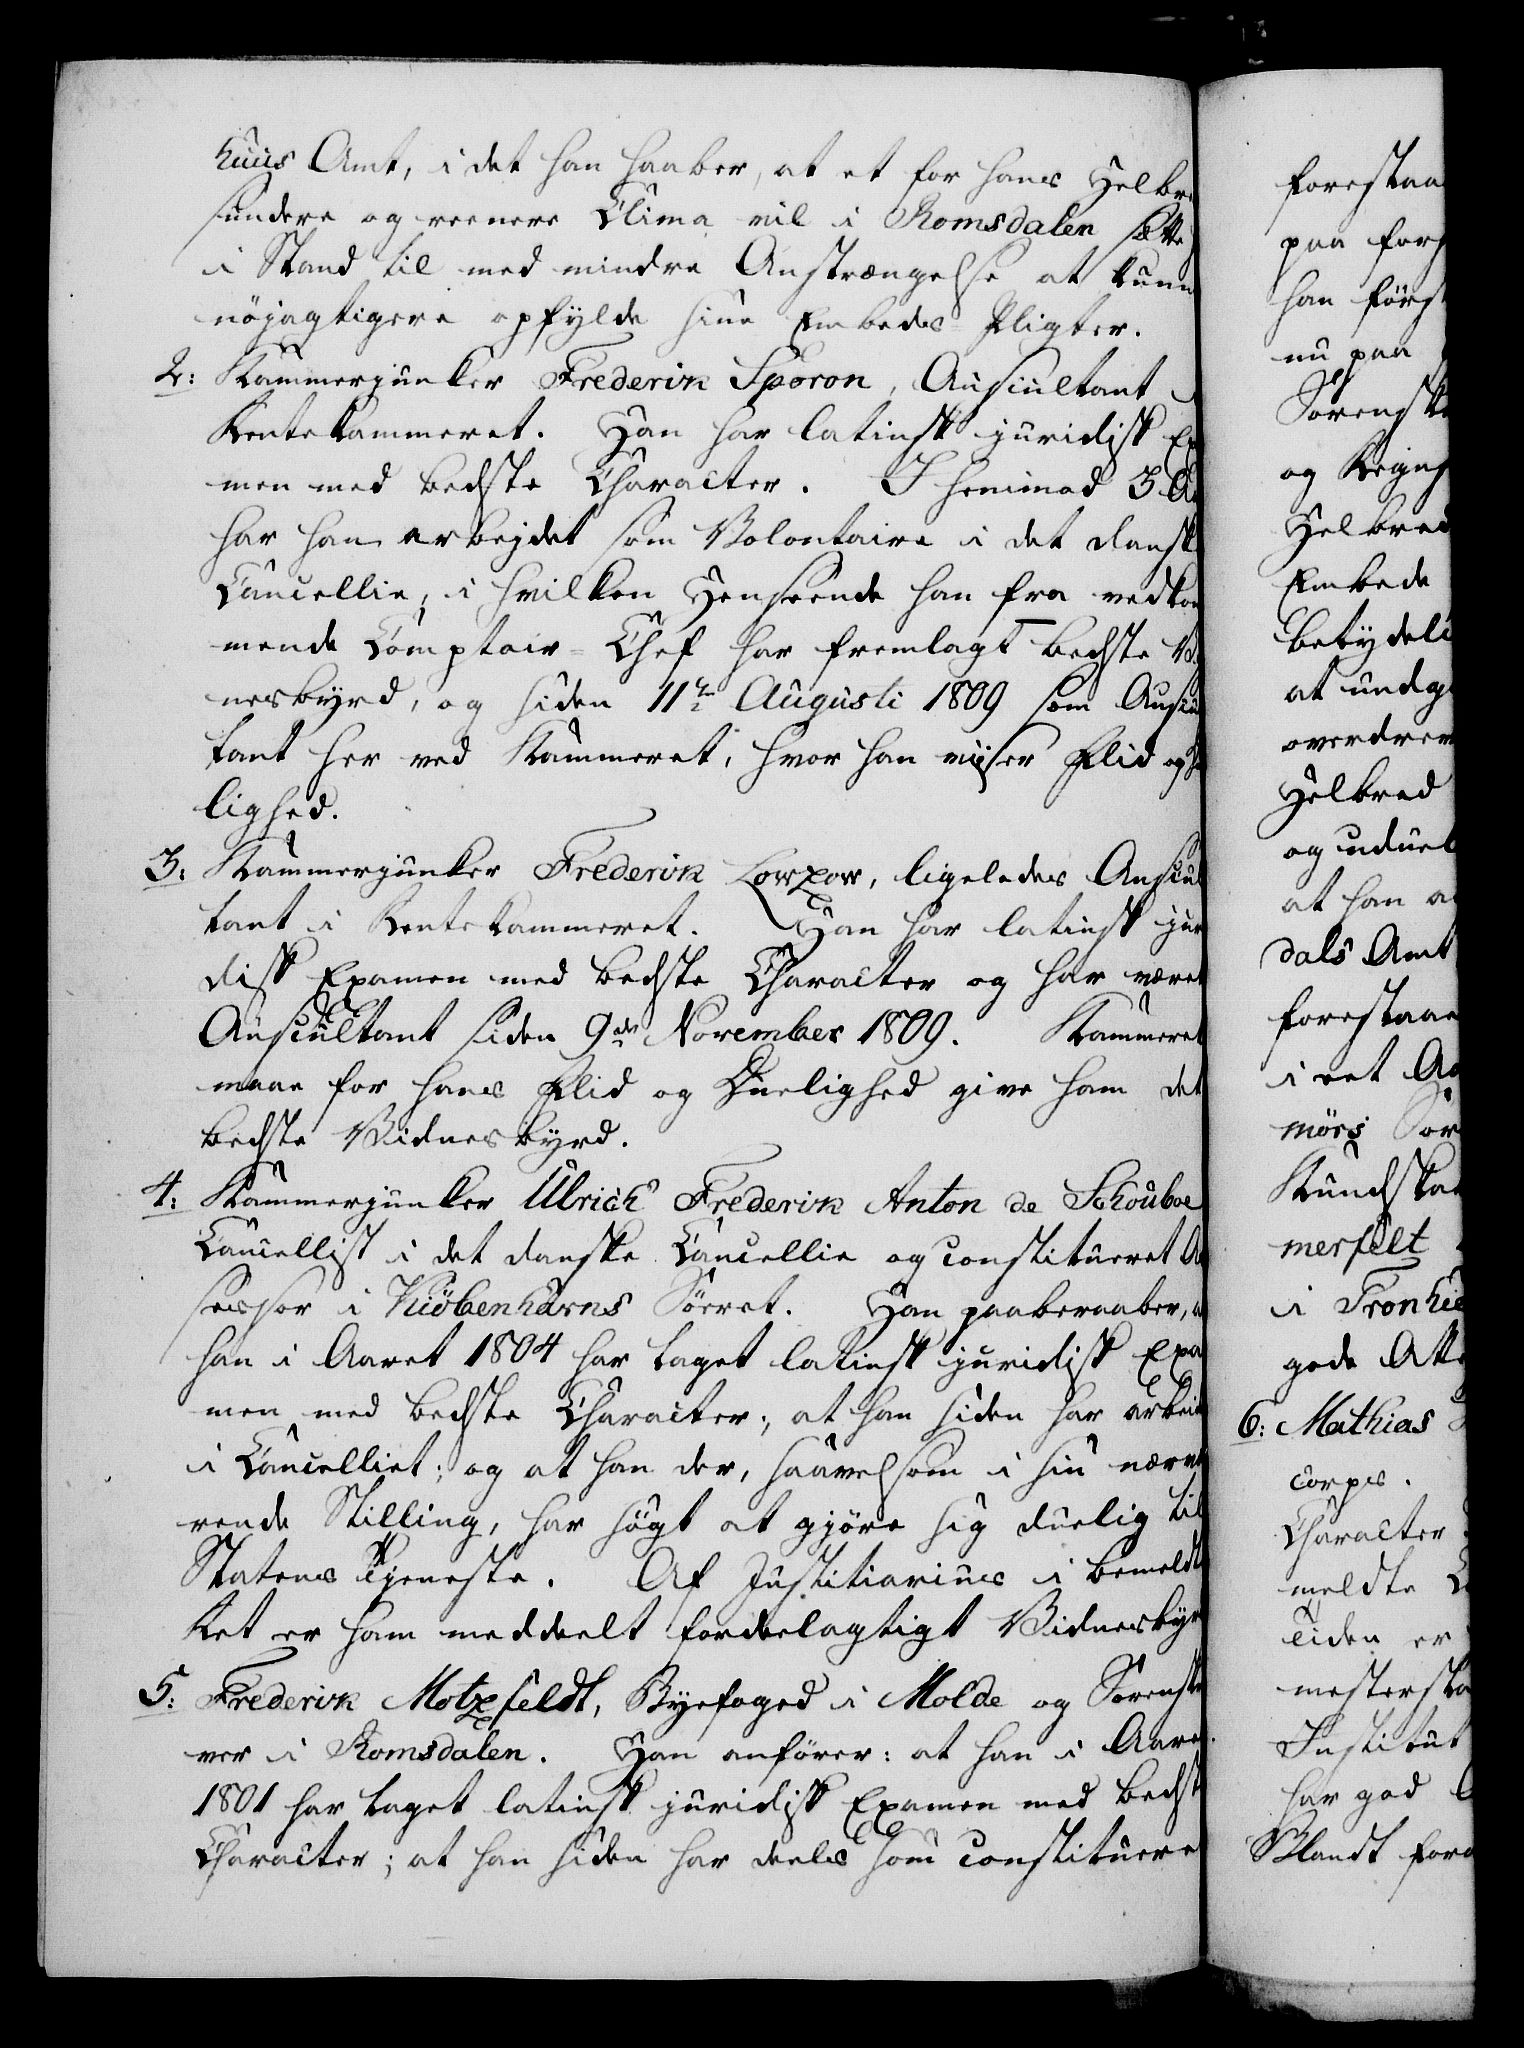 huus Amt, i det han haaber, at et for hans Helbre
sundere og reenere Clima vil i Romsdalen sætte
i Stand til med mindre Anstrængelse at kunn
nöjagtigere opfylde sine Embeds-Pligter.
2: Kammerjunker Frederik Sporon, Auscultant i
Rentekammeret. Han har latinsk juridisk Ex
men med bedste Character. I henimod 3 Aa
har han arbejdet som Volontaire i det danske
Cancellie, i hvilken Henseende han fra vedkom
mende Comptoir-Chef har fremlagt bedste Vid
nesbyrd, og siden 11te Augusti 1809 som Auscul
tant her ved Kammeret, hvor han viiser Flid og
lighed.
3: Kammerjunker Frederik Lowzow, ligeledes Auscul
tant i Rentekammeret. Han har latinsk juri
disk Examen med bedste Character og har været
Auscultant siden 9de November 1809. Kammeret
maae for hans Flid og Duelighed give ham det
bedste Vidnesbyrd.
4: Kammerjunker Ulrich Frederik Anton de Schouboe
Cancellist i det danske Cancellie og constitueret As
sessor i Kiöbenhavns Söeret. Han paaberaaber, at
han i Aaret 1804 har taget latinsk juridisk Exa
men med bedste Character; at han siden har arbeid
i Cancelliet; og at han der, saavelsom i sin nærvæ
rende Stilling, har sögt at gjöre sig duelig til
Statens Tjeneste. Af Justitiarius i bemeldte
Ret er ham meddeelt fordeelagtigt Vidnesbyr
5: Frederik Motzfeldt, Byefoged i Molde og Sorenskri
ver i Romsdalen. Han anförer: at han i Aaret
1801 har taget latinsk juridisk Examen med bedste
Character; at han siden har deels som constituere
forestaae
paa fors
han först
nu paa
Sorenskr
og Regns
Helbred
Embede
betydeli
at undg
overdrev
Helbred
og uduel
at han a
dals Amt
forestaae
i eet Aa
mörs Sor
Kundskab
merfelt
i Tronhie
gode Atte
6: Mathias
Corps.
Character
meldte
Tiden er
mesterska
Institut
har god
Blandt fora